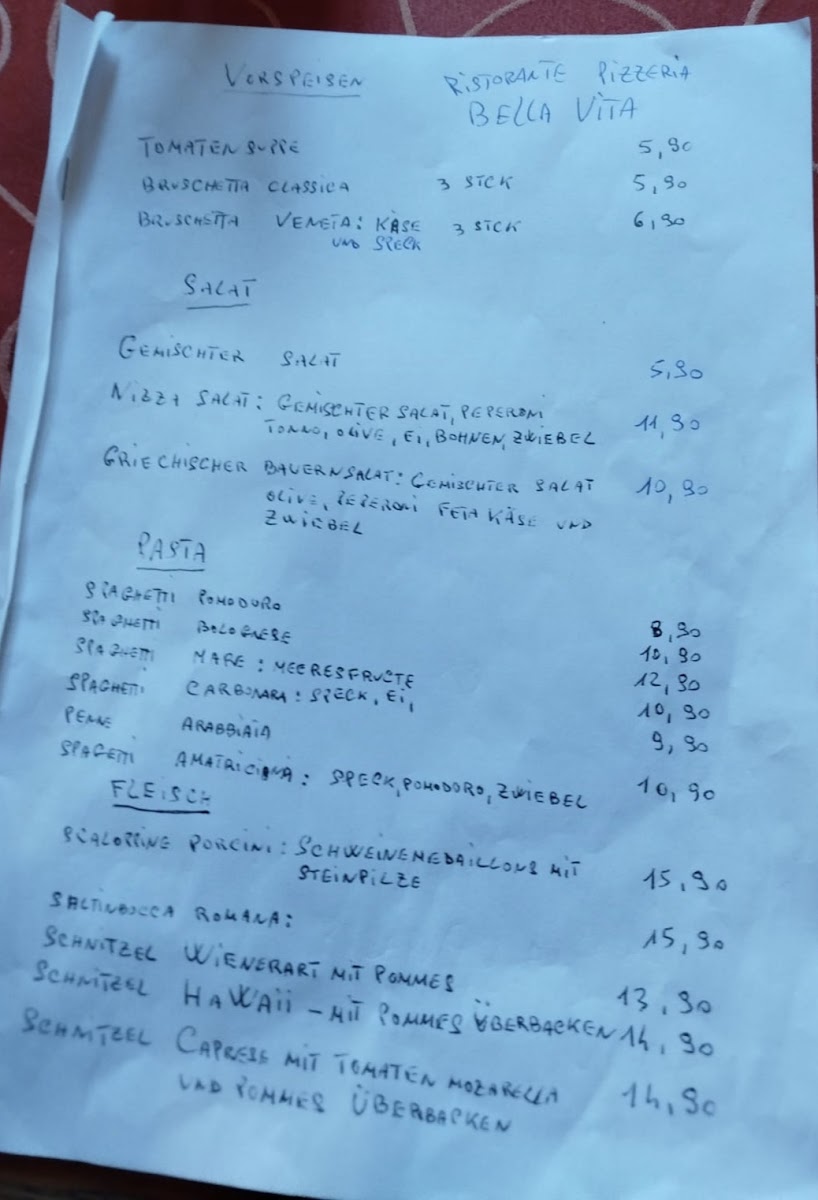 VORSPEISEN
RISTORANTE PIZZERIA
BELLA VITA
TOMATEN SUPPE 5,90
BRUSCHETTA CLASSICA 3 STCK 5,90
BRUSCHETTA VENETA: KÄSE 3 STCK 6,90
UND SPECK
SALAT
GEMISCHTER SALAT 5,90
NIZZA SALAT: GEMISCHTER SALAT, PEPERONI 11,90
TONNO, OLIVE, EI, BOHNEN, ZWIEBEL
GRIECHISCHER BAUERNSALAT: GEMISCHTER SALAT 10,90
OLIVE, PEPERONI FETA KÄSE UND
ZWIEBEL
PASTA
SPAGHETTI POMODORO 8,90
SPAGHETTI BOLOGNESE 10,90
SPAGHETTI MARE: MEERESFRUCTE 12,90
SPAGHETTI CARBONARA: SPECK, EI, 10,90
PENNE ARABBIATA 9,90
SPAGETTI AMATRICIANA: SPECK, POMODORO, ZWIEBEL 10,90
FLEISCH
SCALOPPINE PORCINI: SCHWEINEMEDAILLONS MIT 15,90
STEINPILZE
SALTINBOCCA ROMANA: 15,90
SCHNITZEL WIENERART MIT POMMES 13,90
SCHNITZEL HAWAII - MIT POMMES ÜBERBACKEN 14,90
SCHNITZEL CAPRESE MIT TOMATEN MOZARELLA 14,90
UND POMMES ÜBERBACKEN